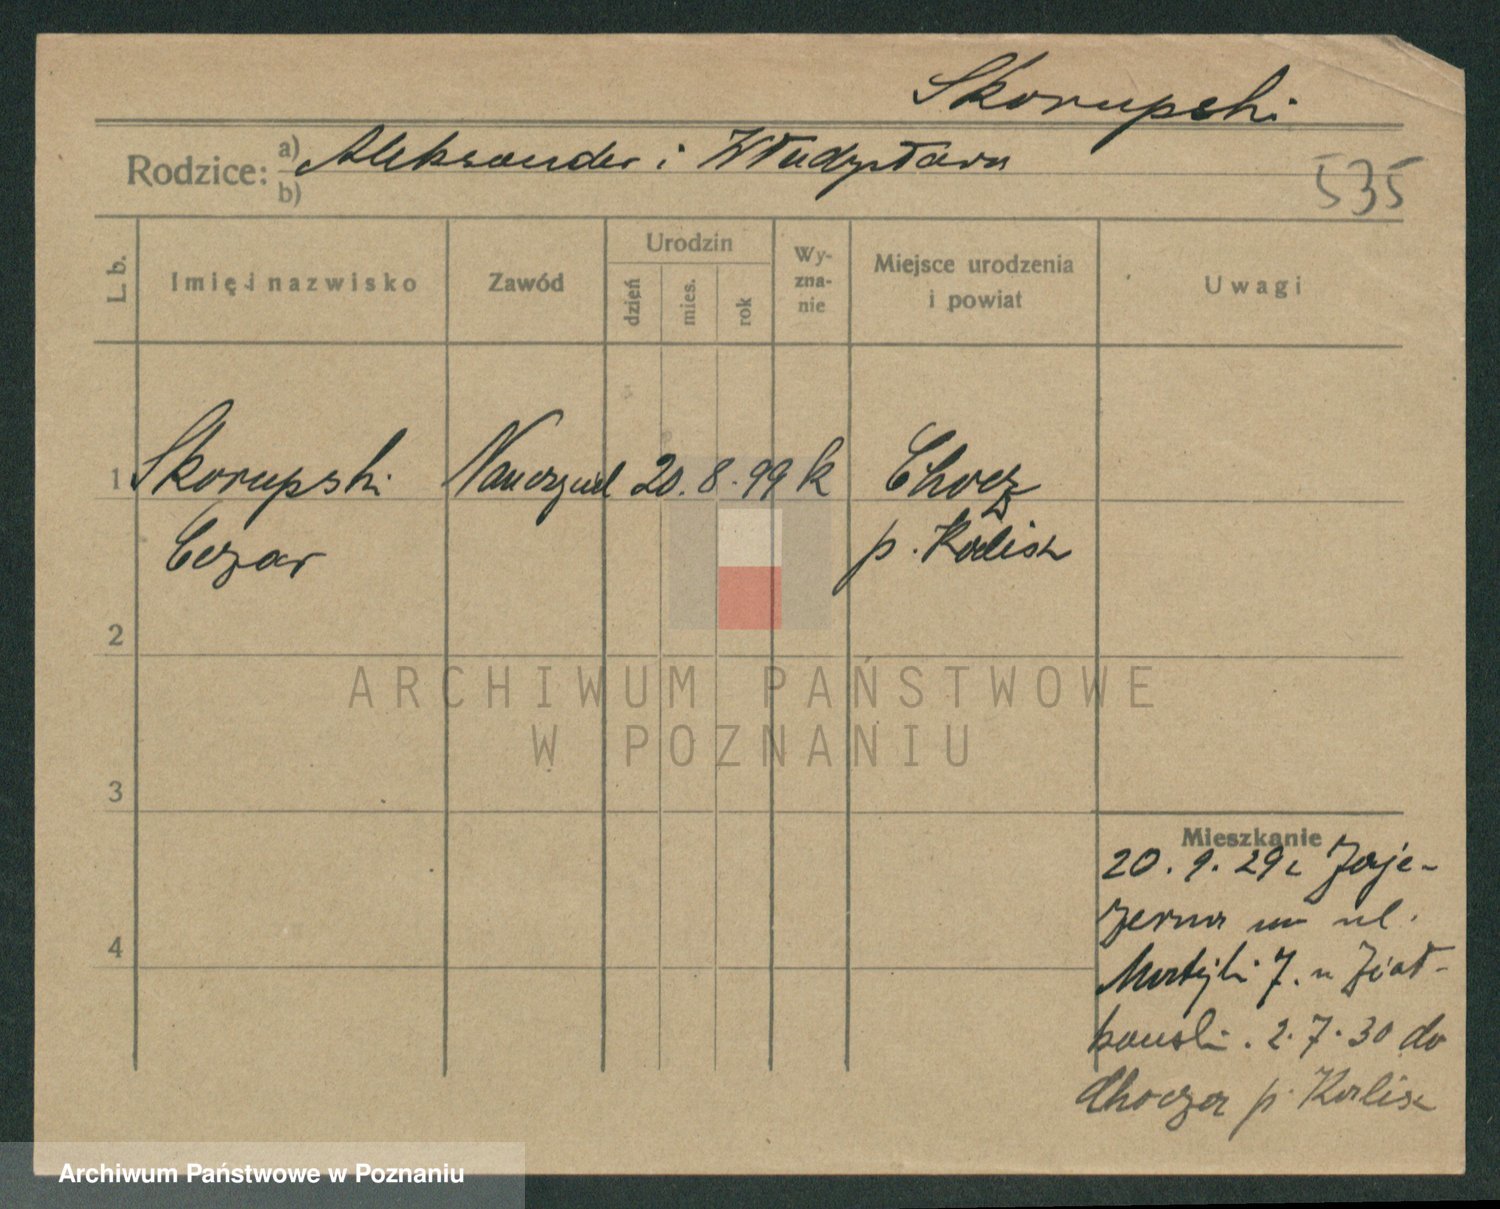 Skorupski
Rodzice: a) Aleksander i Władysława
b)
535
L. b.
Imię i nazwisko
Zawód
Urodzin
dzień
mies.
rok
Wy-
zna-
nie
Miejsce urodzenia
i powiat
Uwagi
1 Skorupski Nauczyciel 20. 8. 99 k Chocz
Cezar p. Kalisz
2
ARCHIWUM PAŃSTWOWE
W POZNANIU
3
Mieszkanie
20. 9. 29 z Jaje-
na ul.
Matejki 7. u
2. 7. 30 do
Chocza p. Kalisz
4
Archiwum Państwowe w Poznaniu